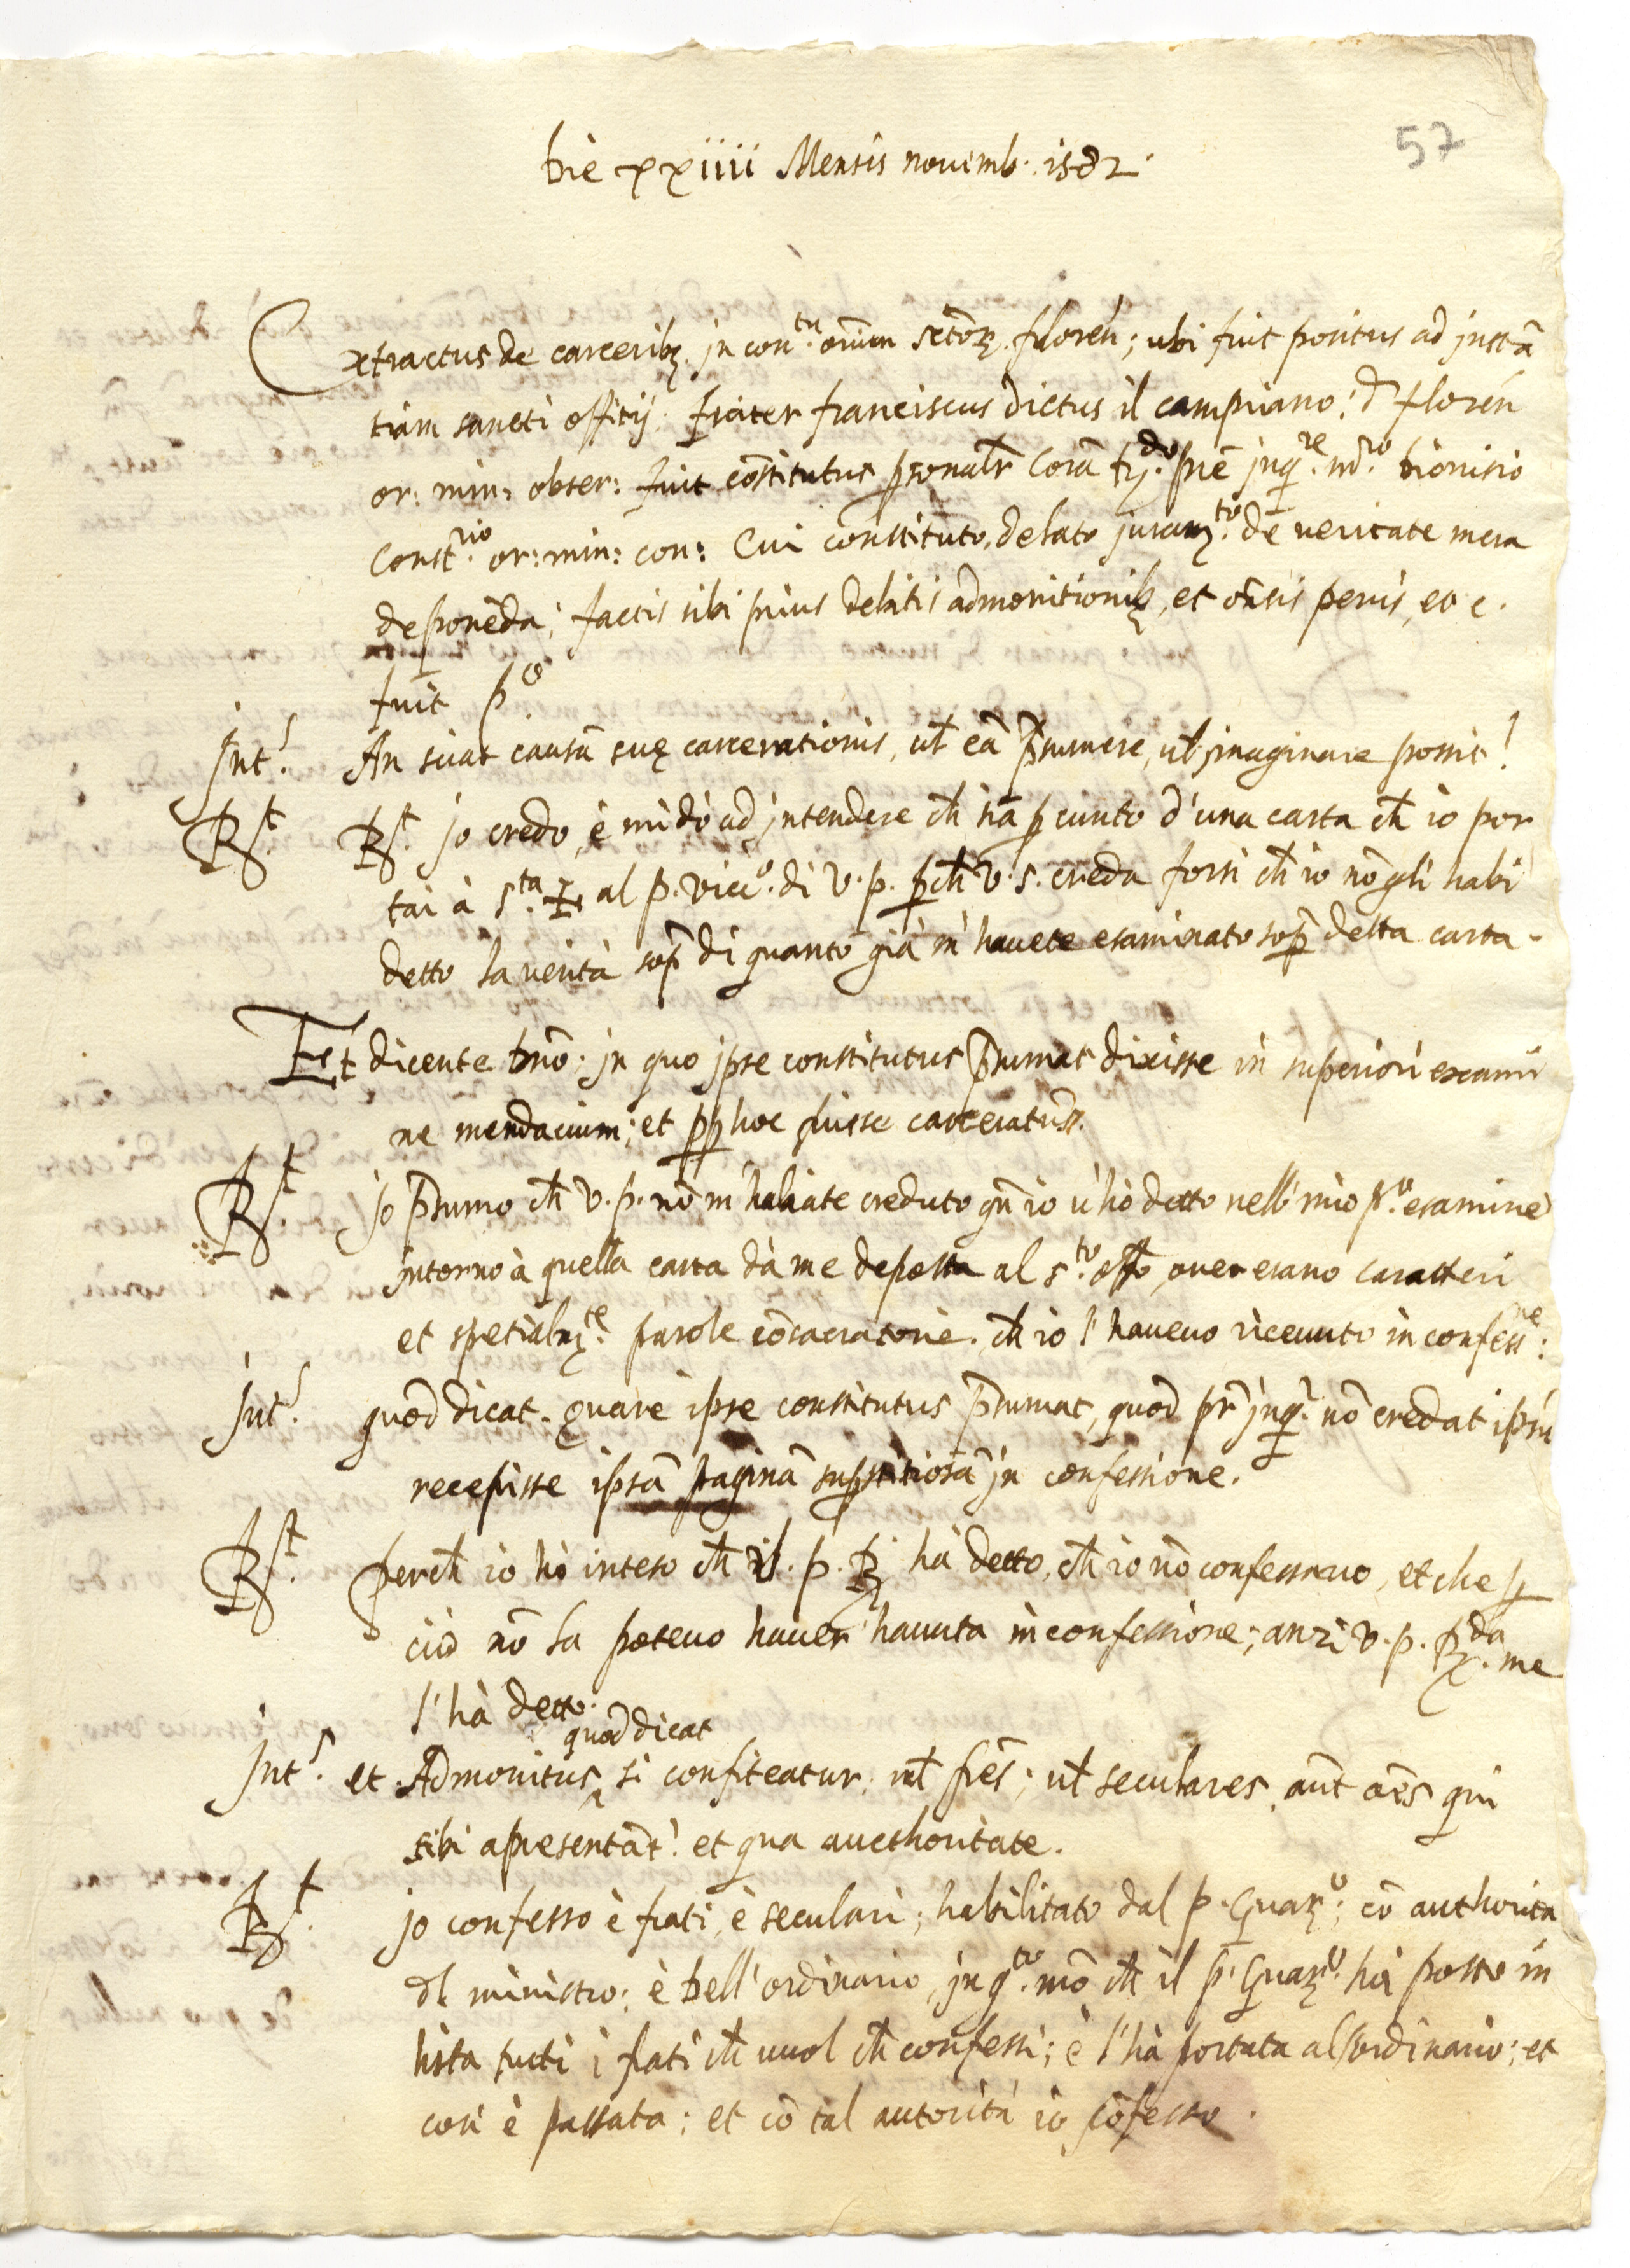 57
Die xxiiii Mensis novemb. 1582.
Extractus de carceribȝ. in con.tu oīum sctōrȝ. florēn; ubi fuit positus ad justā
tiam sancti offitij. frater franciscus dictus il campriano. d florēn
or: min: obser: fuit cōstitutus p̱sonalr̄ Corā Rȝ.do prē jnq.re m.ro Dionisio
Const.rio or: min: con: Cui constituto, delato juramȝ.to de veritate mera
deponēda; factis sibi prius debitis admonitionibȝ, et om̄sis penis, et c.
fuit p.o
Int.s An sciat causā suę carcerationis, ul̄ eā p̄sumere, ul̄ jmaginare possit!
R.st R.st jo credo, è mi dò ad jntendere ch̄ sia p̱ cunto d'una carta ch̄ io por
tai à S.ta ✠ al p. vic.o di V. p. p̱ch̄ V. S. creda forsi ch̄ io nō gli habi
detto la verità sop̄ di quanto già m'havete esaminato sop̄ detta carta.
Et dicente Dnō. jn quo jpse constitutus p̄sumat dixisse in superiori exami
ne mendacium; et pp̱ hoc fuisse carceratum̄.
R.st Jo p̄sumo ch̄ V. p. nō m'habiate creduto qn̄ io v'hò detto nell' mio p.o examine
jntorno à quella carta dà me deposta al s.to offo, over erano caratteri
et spetialmȝ.te parole cōsacratorie. ch̄ io l'havevo ricevuto in confess.ne:
Int.s quod dicat. quare ipse constitutus p̄sumat, quod pr̄ jnq.r nō credat ipsū
recepisse ipsā paginā supstitiosā jn confessione.
R.st perch̄ io hò inteso ch̄ il. p. Rȝ hà detto, ch̄ io nō confessavo, et che p̱
ciò nō la potevo haver havuta in confessione; anzi V. p. Rȝ.da me
l'hà detto.
quod dicat
Int.s et Admonitus ^ si confiteatur, ul̄ frēs; ul̄ seculares, aut̄ oēs qui
sibi apresentāt! et qua aucthoritate.
R.st jo confesso è frati, è seculari; habilitato dal p. Guarȝ.o; cō authorita
dl ministro; è dell'ordinario, jn q.to mō ch̄ il p. Guarȝ.o hà posto in
lista tutti i frati ch̄ vuol ch̄ confessi; è l'hà portata all'ordinario; et
cosi è passata; et cō tal autorità io cōfesso.